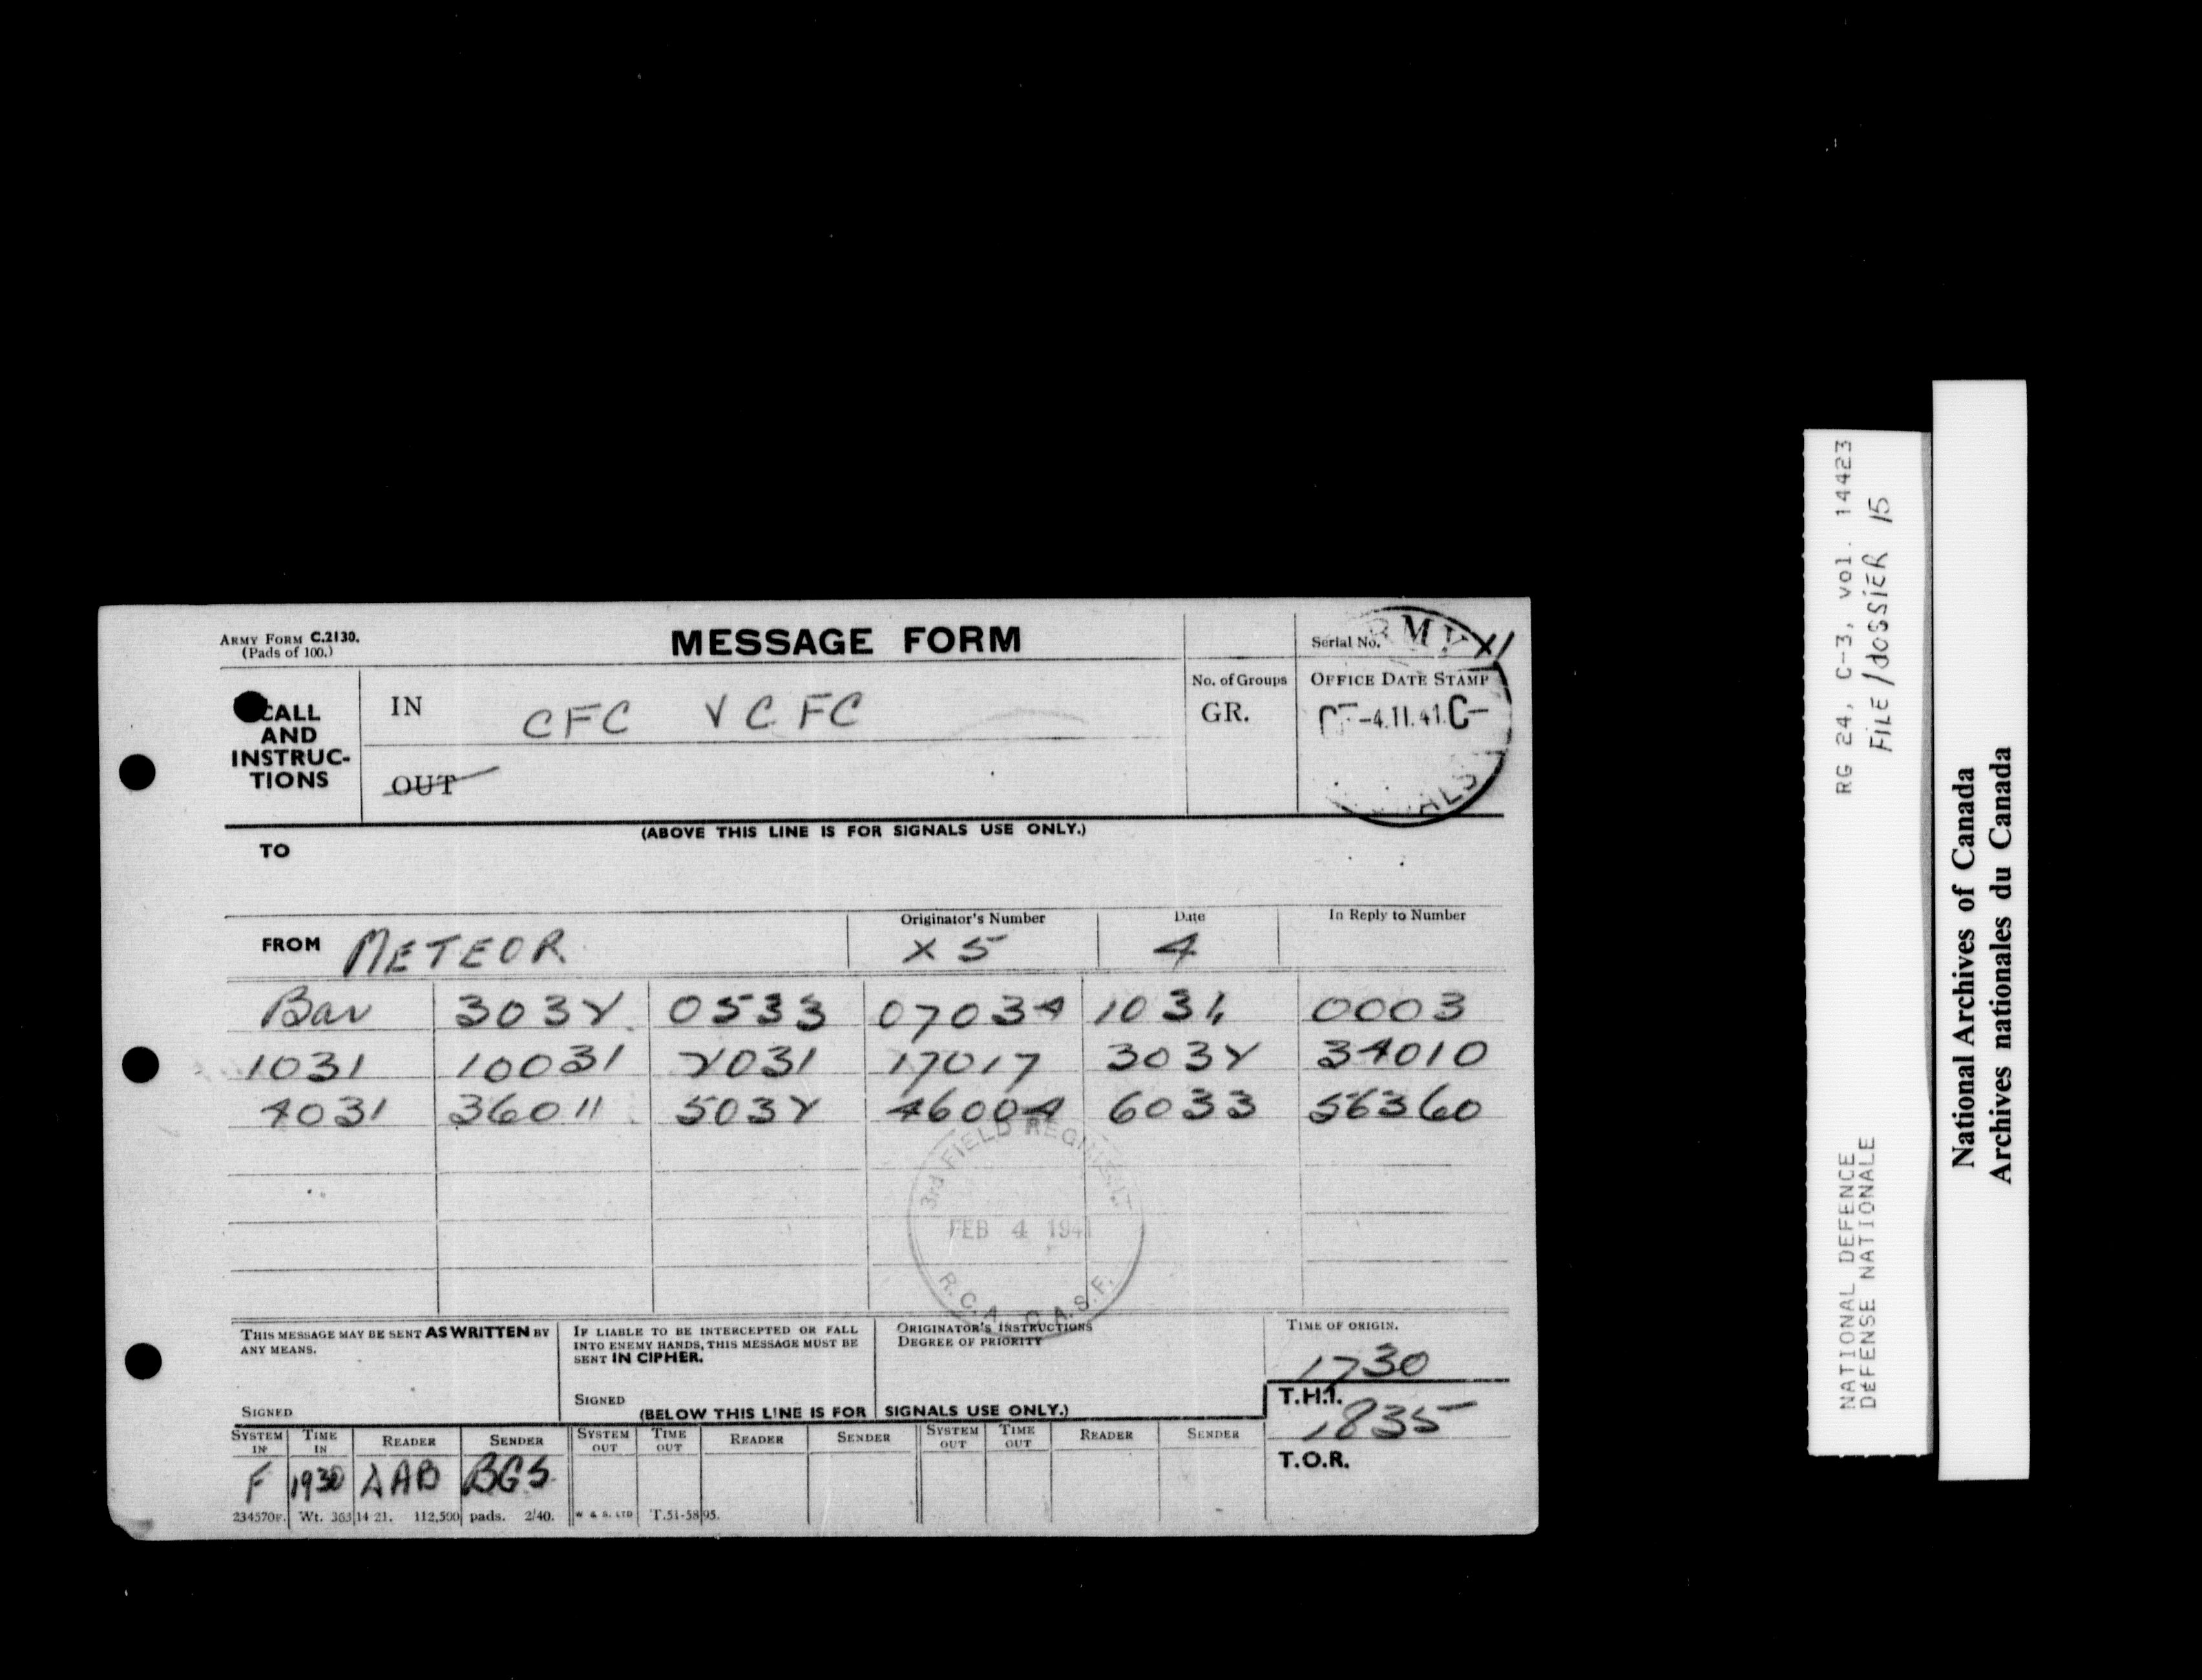 ARMY FORM C.2130.
(Pads of 100.)
MESSAGE FORM
Serial No.
CALL AND INSTRUC-TIONS
IN CFC V CFC
OUT
No. of Groups
GR.
OFFICE DATE STAMP
-4.11.41.C-
(ABOVE THIS LINE IS FOR SIGNALS USE ONLY.)
TO
FROM METEOR
Originator's Number
X 5
Date
4
In Reply to Number
Bar 3032 0533 07034 1031 0003
1031 10031 2031 17017 3032 34010
4031 36011 5032 46004 6033 56360
3rd FIELD REGIMENT
FEB 4 1941
R.C.A. C.A.S.F.
THIS MESSAGE MAY BE SENT AS WRITTEN BY ANY MEANS.
SIGNED
IF LIABLE TO BE INTERCEPTED OR FALL INTO ENEMY HANDS, THIS MESSAGE MUST BE SENT IN CIPHER.
SIGNED
ORIGINATOR'S INSTRUCTIONS
DEGREE OF PRIORITY
TIME OF ORIGIN.
1730
T.H.I.
1835
T.O.R.
(BELOW THIS LINE IS FOR SIGNALS USE ONLY.)
SYSTEM IN TIME IN READER SENDER SYSTEM OUT TIME OUT READER SENDER SYSTEM OUT TIME OUT READER SENDER
F 1930 AAB BGS
234570F. Wt. 363 14 21. 112,500 pads. 2/40. W & S. LTD T.51-5895.
RG 24, C-3, vol. 14423
FILE / dOSSiER 15
NATIONAL DEFENCE
DÉFENSE NATIONALE
National Archives of Canada
Archives nationales du Canada